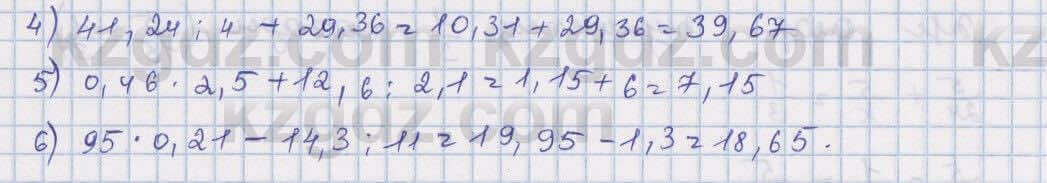 4) 41,24 : 4 + 29,36 = 10,31 + 29,36 = 39,67
5) 0,46 · 2,5 + 12,6 : 2,1 = 1,15 + 6 = 7,15
6) 95 · 0,21 - 14,3 : 11 = 19,95 - 1,3 = 18,65.
kzgdz.com